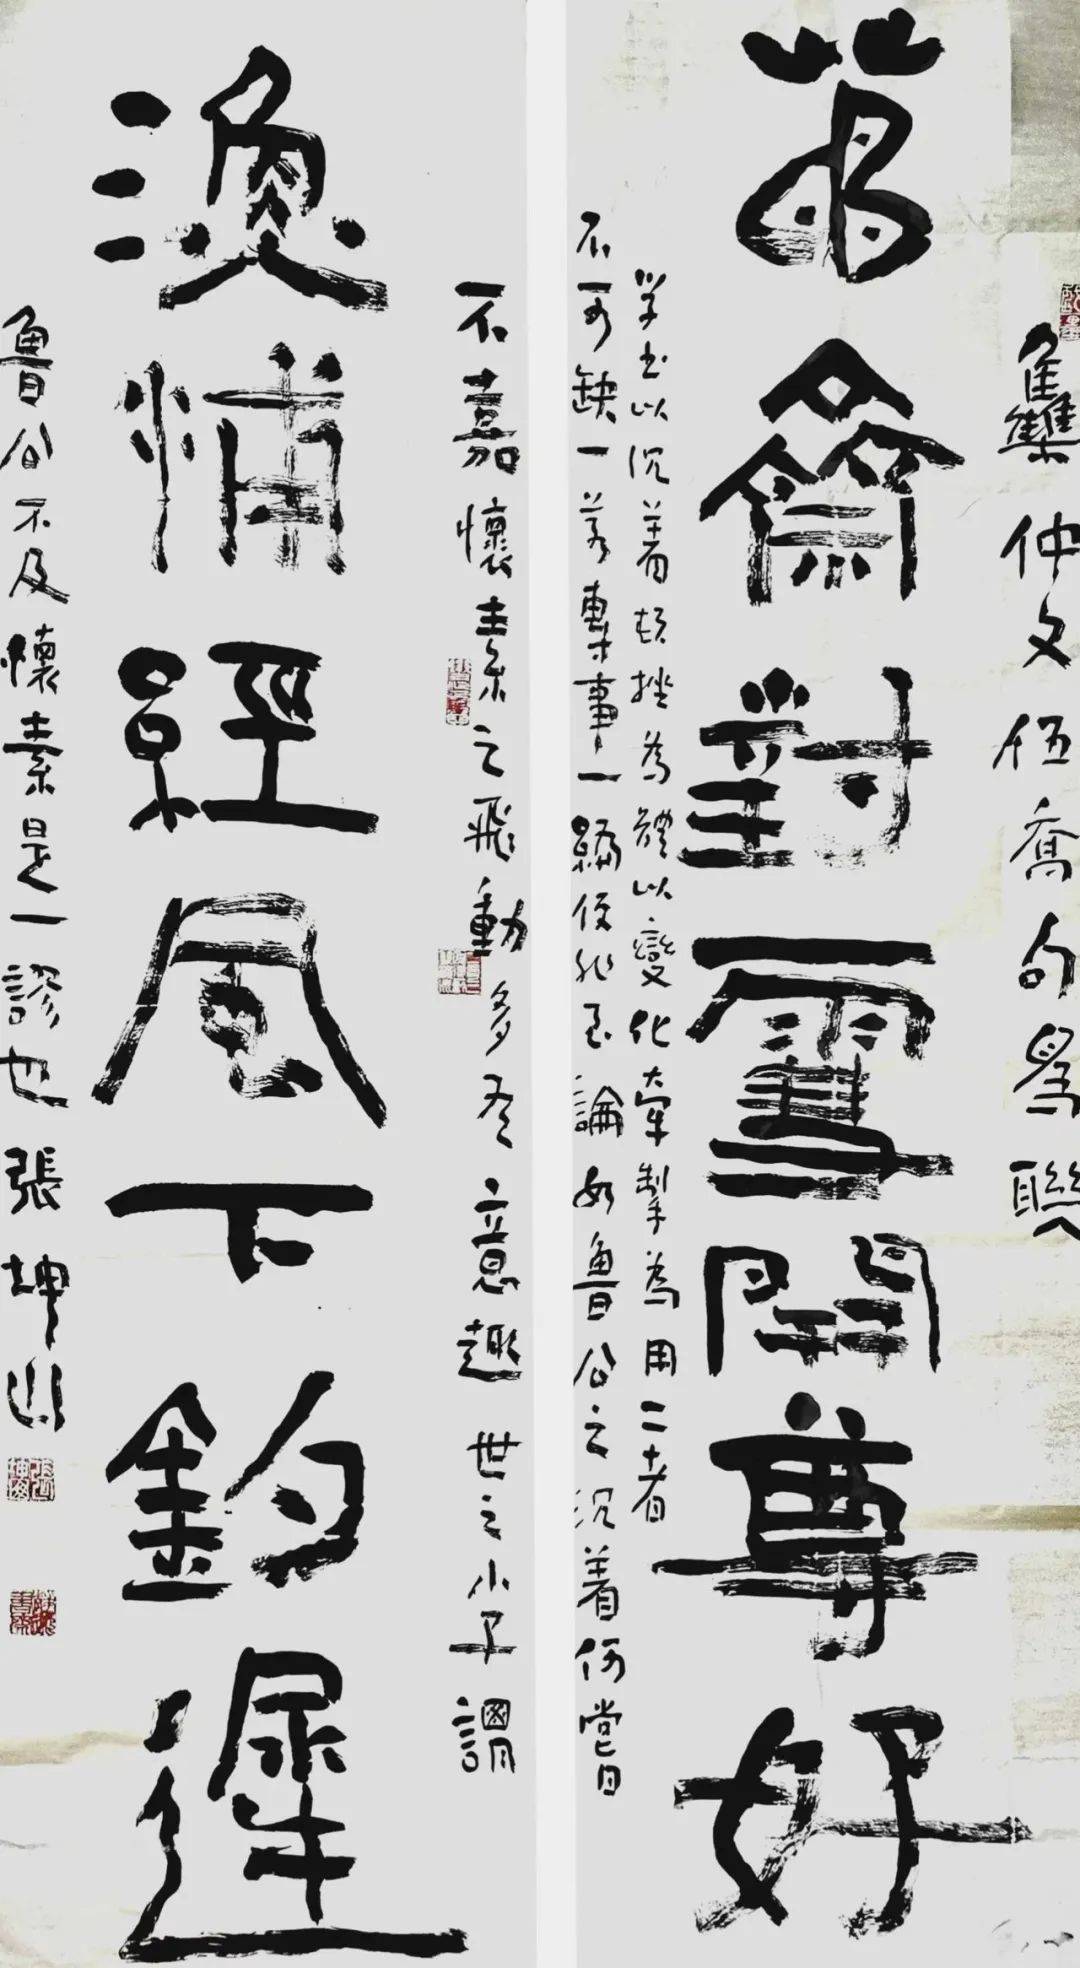 集仲文伍喬句為聯
萬?齋對雪開尊好
學書以沉着頓挫為體以變化牽掣為用二者
不可缺一若專事一偏便非至論如魯公之沉着何嘗
不嘉懷素之飛動多有意趣世之小子謂
漁浦經風下釣遲
魯公不及懷素是一謬也張坤山